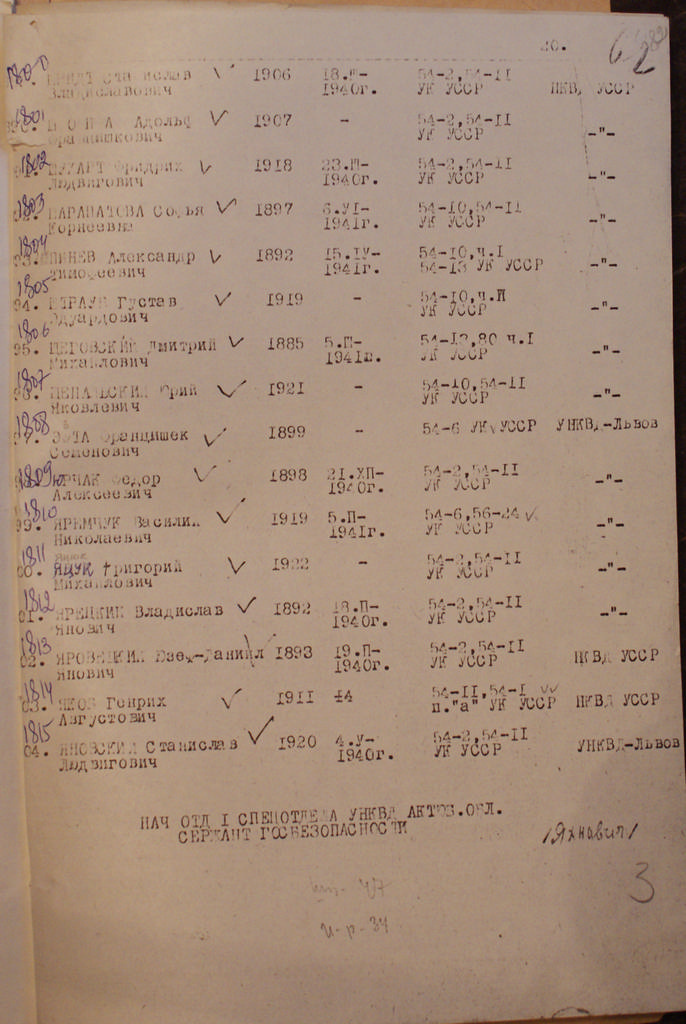 20.
62
1800
Станислав ✓ 1906 18.П- 54-2,54-II
Владиславович 1940г. УК УССР НКВД УССР
1801
Адольф ✓ 1907 - 54-2,54-II
УК УССР -"-
1802
Фридрих ✓ 1918 23.П- 54-2,54-II
Людвигович 1940г. УК УССР -"-
1803
Софья ✓ 1897 6.УI- 54-10,54-II
Корнеевна 1941г. УК УССР -"-
1804
93. Александр ✓ 1892 15.IУ- 54-10,ч.I
Тимофеевич 1941г. 54-13 УК УССР -"-
1805
94. ШТРАУС Густав ✓ 1919 - 54-10,ч.П
Эдуардович УК УССР -"-
1806
95. Дмитрий ✓ 1885 5.П- 54-13,80 ч.I
Михайлович 1941г. УК УССР -"-
1807
Юрий ✓ 1921 - 54-10,54-II
Яковлевич УК УССР -"-
1808
Францишек ✓ 1899 - 54-6 УК УССР УНКВД-Львов
Семенович
1809
Федор ✓ 1898 21.ХП- 54-2,54-II
Алексеевич 1940г. УК УССР -"-
1810
99. ЯРЕМЧУК Василий ✓ 1919 5.П- 54-6,56-24 ✓
Николаевич 1941г. УК УССР -"-
1811
00. ЯЦУК Григорий ✓ 1922 - 54-2,54-II
Михайлович УК УССР -"-
1812
01. ЯРЕЦКИЙ Владислав ✓ 1892 18.П- 54-2,54-II
Янович 1940г. УК УССР -"-
1813
02. ЯРОВЕЦКИЙ Юзеф-Даниил 1893 19.П- 54-2,54-II
Янович 1940г. УК УССР НКВД УССР
1814
03. ЯКОБ Генрих ✓ 1911 14 54-II,54-I ✓✓
Августович п."а" УК УССР НКВД УССР
1815
04. ЯНОВСКИЙ Станислав ✓ 1920 4.У- 54-2,54-II
Людвигович 1940г. УК УССР УНКВД-Львов
НАЧ ОТД I СПЕЦОТДЕЛА УНКВД АКТЮБ.ОБЛ.
СЕРЖАНТ ГОСБЕЗОПАСНОСТИ /Яхнович/
3
47
и-р-34